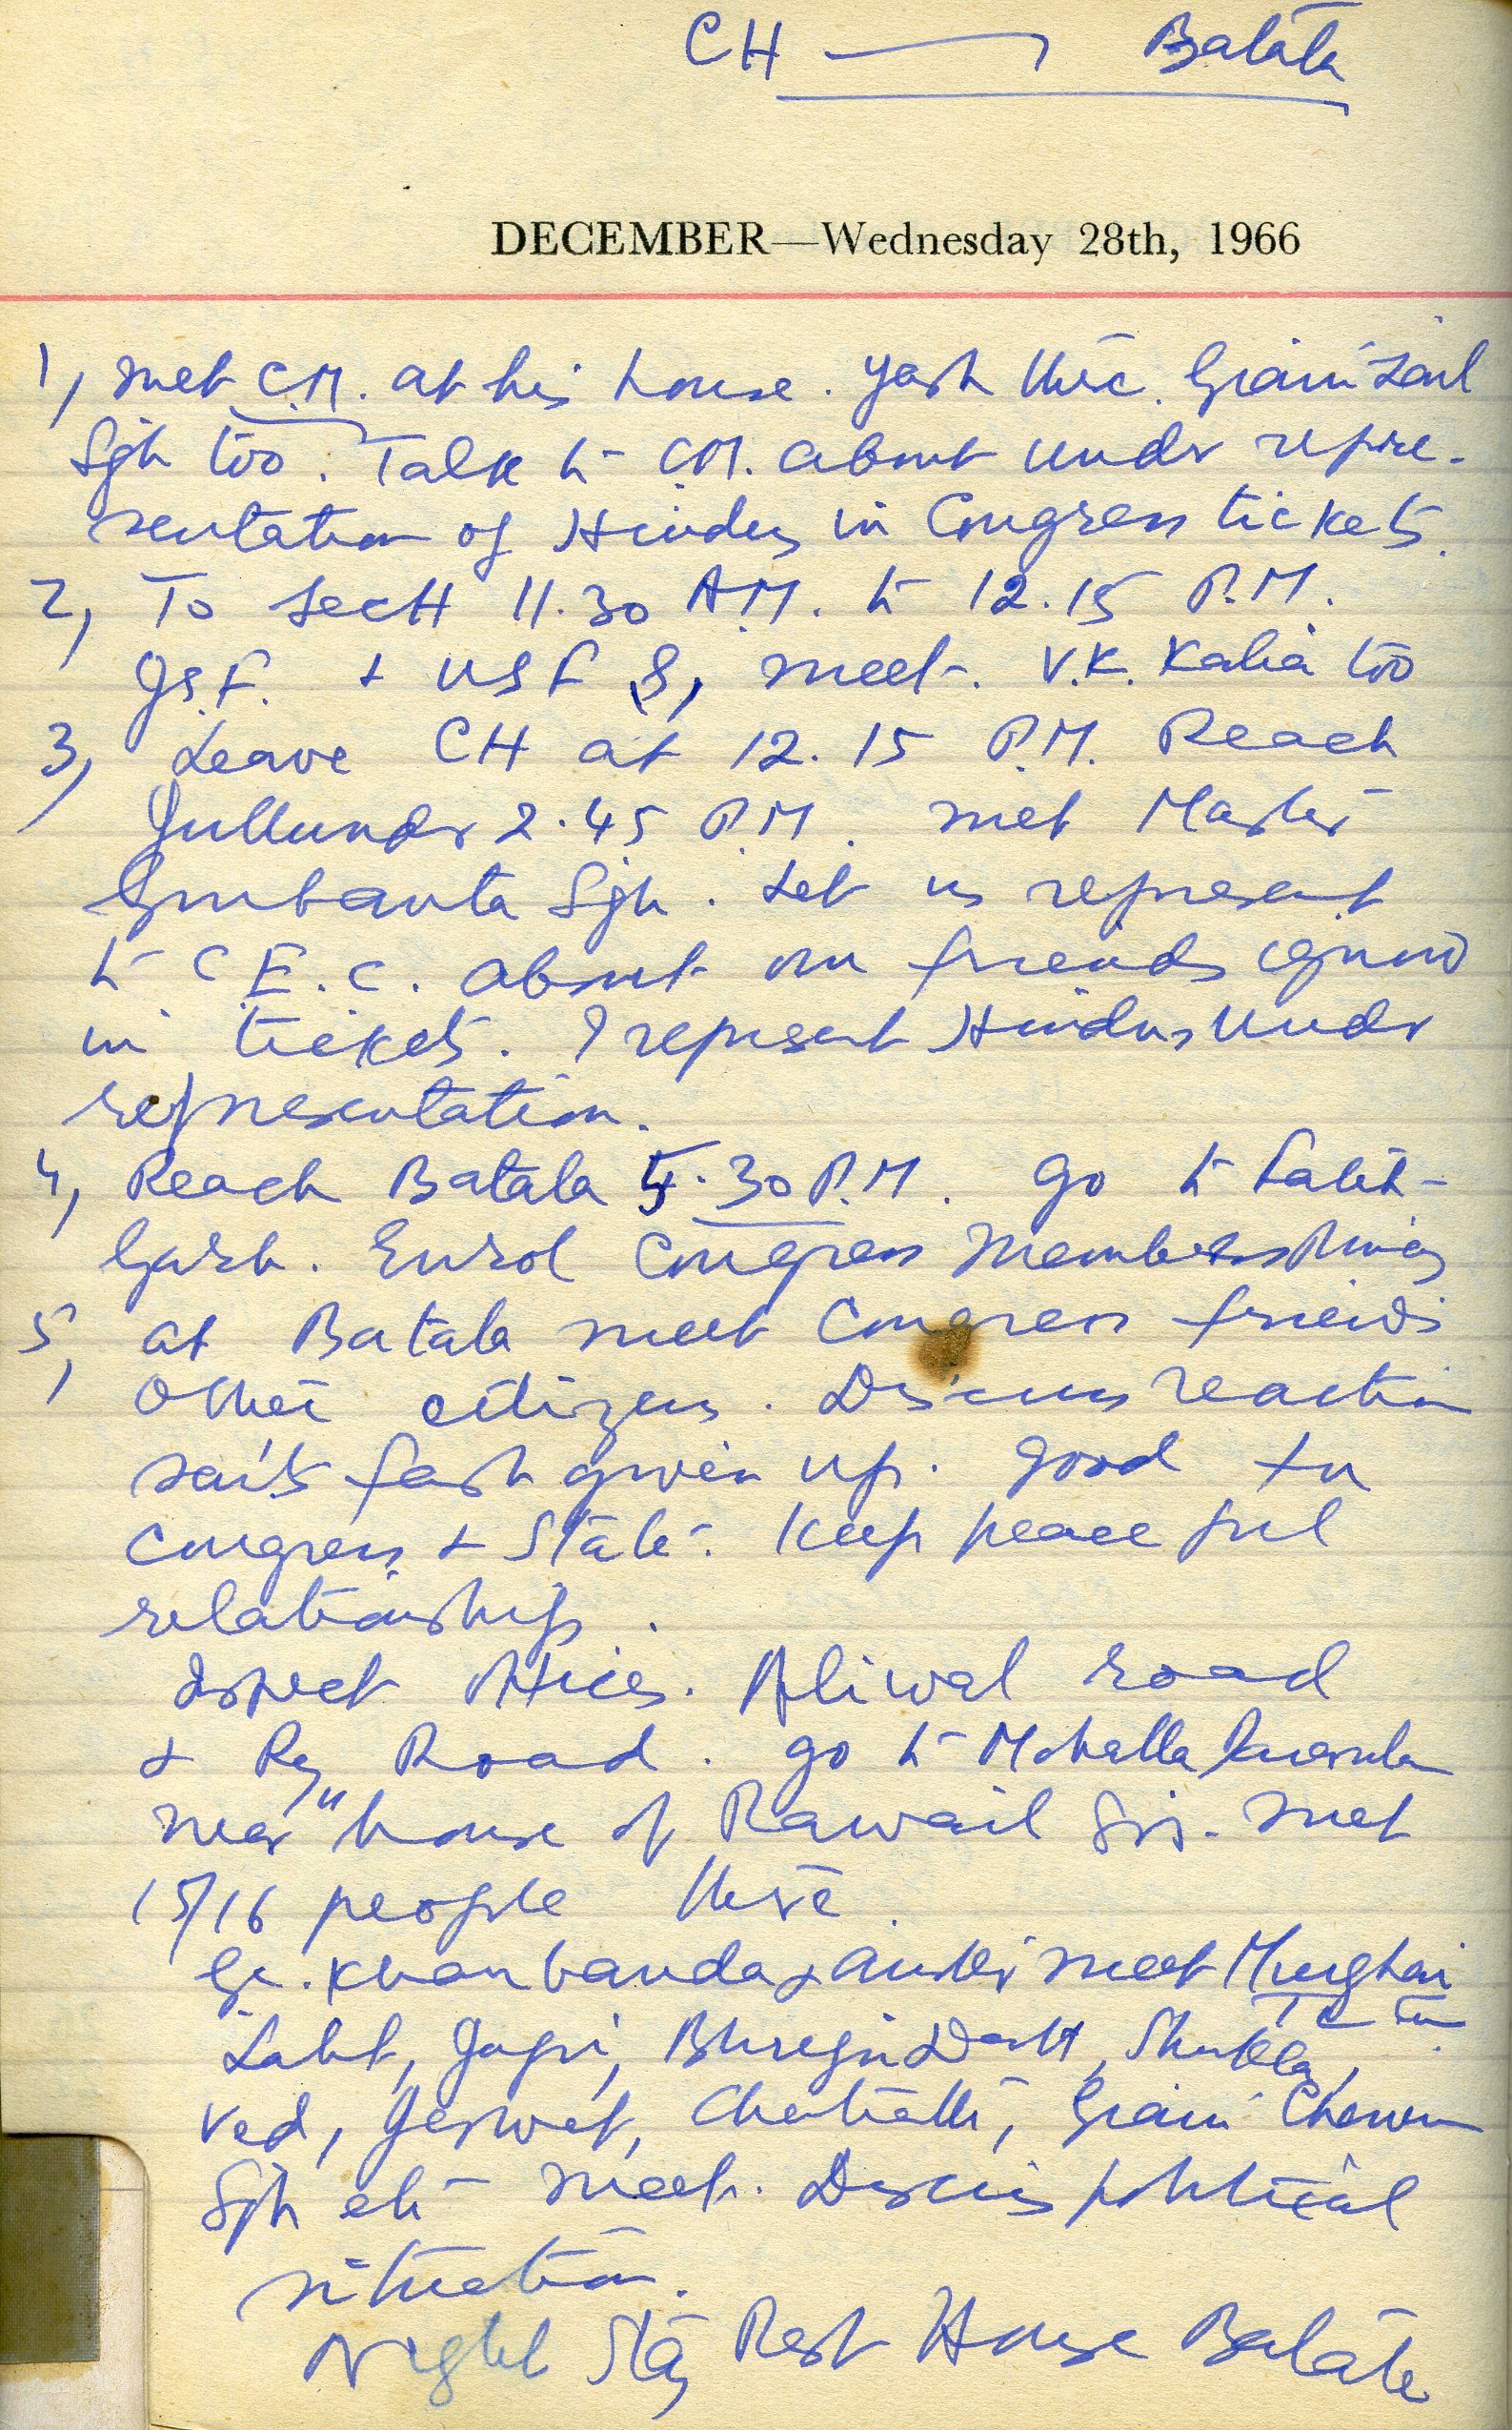 CH → Batala
DECEMBER—Wednesday 28th, 1966
1, met C.M. at his house. Yash there. Giani Zail
Sgh too. Talk to C.M. about under repre-
sentation of Hindus in Congress tickets.
2, To Sectt 11.30 A.M. to 12.15 P.M.
J.S.F. + USF S, meet. V.K. Kalia too
3, Leave CH at 12.15 P.M. Reach
Jullundr 2.45 P.M. met Master
Gurbanta Sgh. Let us represent
to C.E.C. about our friends ignored
in tickets. I represent Hindus under
representation.
4, Reach Batala 5.30 P.M. go to Fateh-
Garh. Enrol Congress Members
5, at Batala meet Congress friends
other citizens. Discuss reaction
sant's fast given up. Good for
Congress + State. Keep peaceful
relationship.
Inspect Offices. Aliwal road
+ Rly Road. go to Mohalla
near house of Rawail Sgh. met
15/16 people there.
Gr. Khanbanda + meet
Lalit, Jagri, Bhregu Datt, Shukla,
Ved, Jeswat, Giani
Sgh etc meet. Discuss political
situation.
Night Stay Rest House Batala